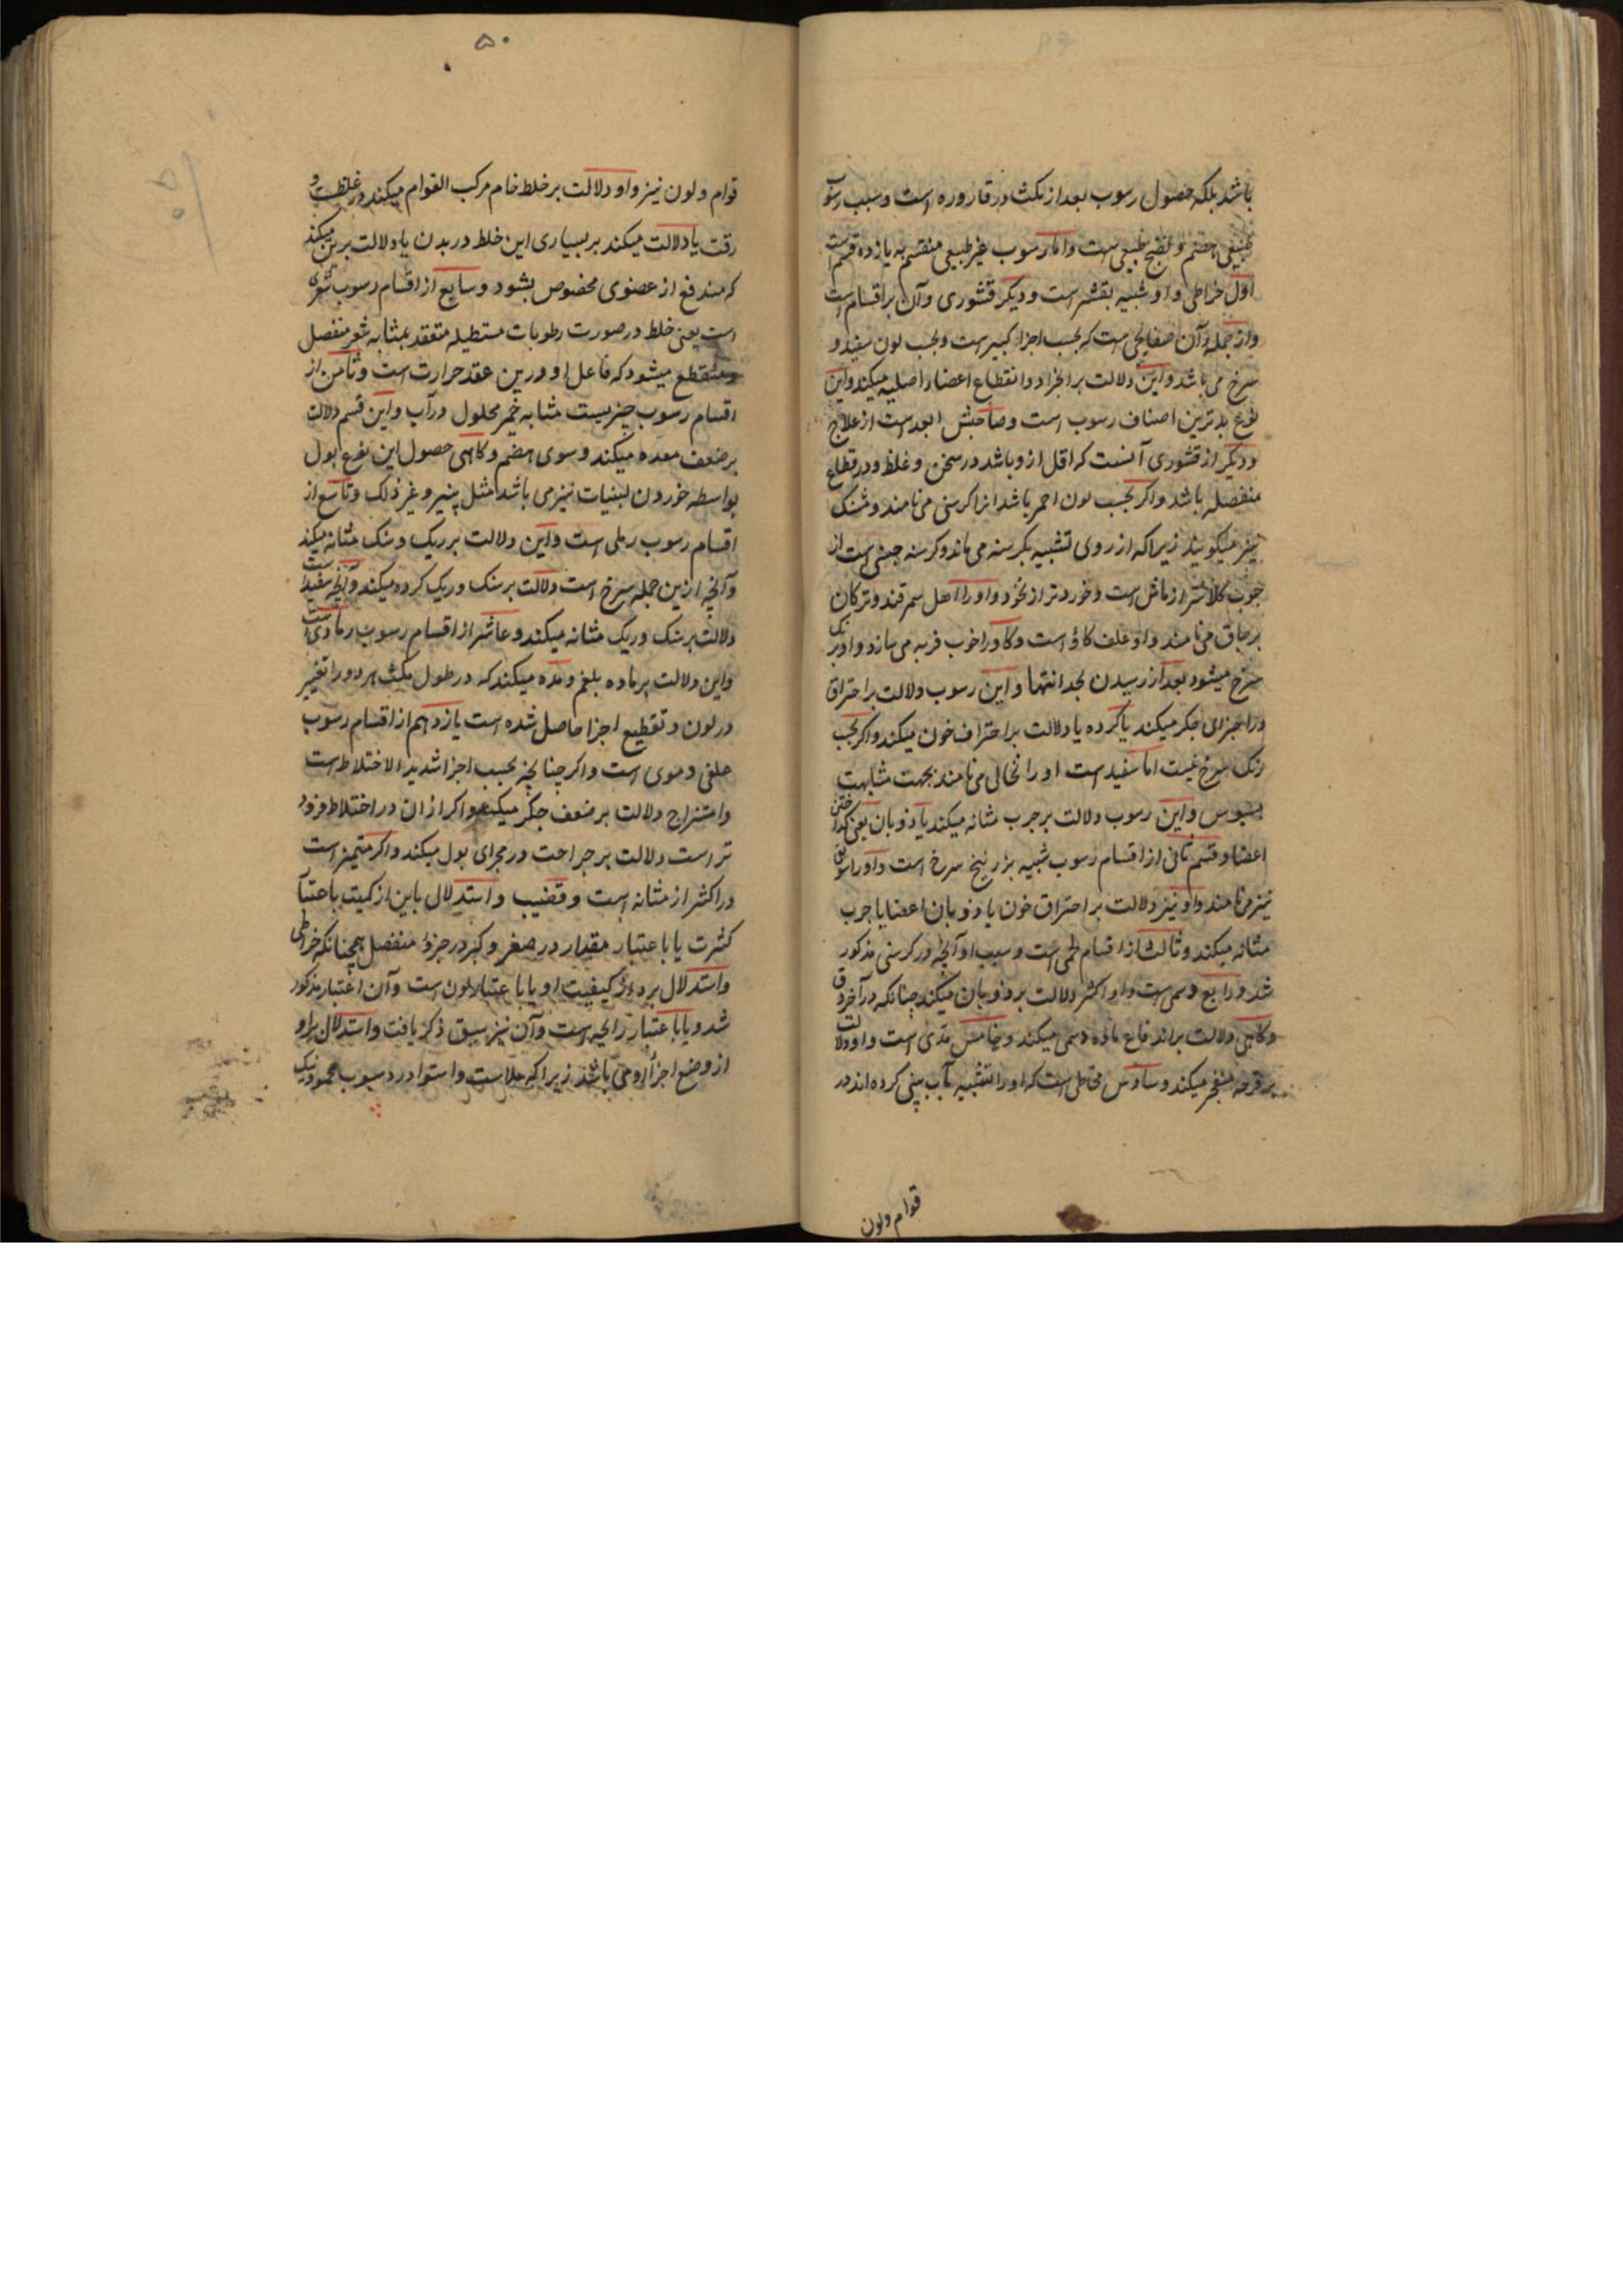 باشد بلکه حصول رسوب بعد از مکث در قاروره است و سبب رسوب
طبیعی هضم و نضج طبیعی است واما رسوب غیر طبیعی منقسم به یازده قسم است
اول خراطی و او شبیه بقشر است و دیکر قشوری و آن بر اقسام است
و از جمله آن صفایحی است که بحسب اجزا کبیر است و بحسب لون سفید و
سرخ می باشد و این دلالت بر انجراد و انقطاع اعضاء اصلیه میکند و این
نوع بدترین اصناف رسوب است و صاحبش ابعد است از علاج
و دیکر از قشوری آنست که اقل ازو باشد در سخن و غلظ و در قطاع
منفصله باشد و اکر بحسب لون احمر باشد انرا کرسنی می نامند و مشنک
نیز میکویند زیرا که از روی تشبیه بکرسنه می ماند و کرسنه حبشی است از
حبوب کلانتر از ماش است و خوردتر از نخود و او را اهل سمرقند و ترکان
برجاق می نامند و او علف کاؤ است و کاو را خوب فربه می سازد و او برنک
سرخ میشود بعد از رسیدن بحد انتها و این رسوب دلالت بر احتراق
در اجزای جکر میکند یا کرده یا دلالت بر احتراق خون میکند و اکر بحسب
رنک سرخ نیست اما سفید است او را نخالی می نامند بجهت مشابهت
بسبوس و این رسوب دلالت بر جرب مثانه میکند یا ذوبان یعنی کداختن
اعضا و قسم ثانی از اقسام رسوب شبیه بزرنیخ سرخ است و او را سویق
نیز می نامند و او نیز دلالت بر احتراق خون یا ذوبان اعضا یا جرب
مثانه میکند و ثالث از اقسام لحمی است و سبب او آنچه در کرسنی مذکور
شد و رابع دسمی است و او اکثر دلالت بر ذوبان میکند چنانکه در آخر دق
و کاهی دلالت بر اندفاع ماده دسمی میکند و خامس مدی است و او دلالت
بر قرحه منفجر میکند و سادس مخاطی است که او را تشبیه بآب بینی کرده اند در
قوام و لون
۵۰
قوام و لون نیز و او دلالت بر خلط خام مرکب القوام میکند در غلظت و
رقت یا دلالت میکند بر بسیاری این خلط در بدن یا دلالت برین میکند
که مندفع از عضوی مخصوص بشود و سابع از اقسام رسوب شعری
است یعنی خلط در صورت رطوبات مستطیله متعقد بمثابه شعر منفصل
و منقطع میشود که فاعل او درین عقد حرارت است و ثامن از
اقسام رسوب چیزیست مشابه خمر محلول در آب و این قسم دلالت
بر ضعف معده میکند و سوی هضم و کاهی حصول این نوع بول
بواسطه خوردن لبنیات نیز می باشد مثل پنیر و غیر ذلک و تاسع از
اقسام رسوب رملی است و این دلالت بر ریک و سنک مثانه میکند
و آنچه ازین جمله سرخ است دلالت بر سنک و ریک کرده میکند و آنچه سفید است
دلالت بر سنک و ریک مثانه میکند و عاشر از اقسام رسوب رمادی است
و این دلالت بر ماده بلغم و مده میکند که در طول مکث هر دو را تغییر
در لون و تقطیع اجزا حاصل شده است یازدهم از اقسام رسوب
علقی دموی است و اکر چنانچه بحسب اجزا شدید الاختلاط است
و امتزاج دلالت بر ضعف جکر میکند و اکر از ان در اختلاط فرود
تر است دلالت بر جراحت در مجرای بول میکند و اکر متمیز است
در اکثر از مثانه است و قضیب و استدلال باین از کمیت باعتبار
کثرت یا باعتبار مقدار در صغر و کبر در جزؤ منفصل همچنانکه خراطی
و استدلال برو از کیفیت او یا باعتبار لون است و آن اعتبار مذکور
شد و یا باعتبار رایحه است و آن نیز سبق ذکر یافت و استدلال برو
از وضع اجزا او می باشد زیرا که ملاست و استوا در رسوب محمود نیک